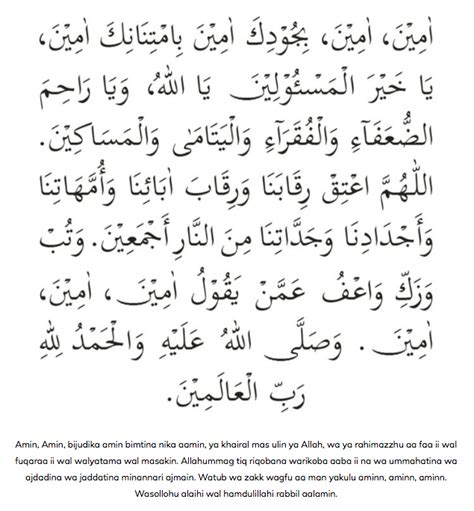 اٰمِيْنَ، اٰمِيْنَ، بِجُوْدِكَ اٰمِيْنَ بِامْتِنَانِكَ اٰمِيْنَ،
يَا خَيْرَ الْمَسْئُوْلِيْنَ يَا اللهُ، وَيَا رَاحِمَ
الضُّعَفَآءِ وَالْفُقَرَآءِ وَالْيَتَامٰى وَالْمَسَاكِيْنَ.
اللّٰهُمَّ اعْتِقْ رِقَابَنَا وَرِقَابَ اٰبَائِنَا وَأُمَّهَاتِنَا
وَأَجْدَادِنَا وَجَدَّاتِنَا مِنَ النَّارِ أَجْمَعِيْنَ. وَتُبْ
وَزَكِّ وَاعْفُ عَمَّنْ يَقُوْلُ اٰمِيْنَ، اٰمِيْنَ،
اٰمِيْنَ. وَصَلَّى اللهُ عَلَيْهِ وَالْحَمْدُ لِلّٰهِ
رَبِّ الْعَالَمِيْنَ.
Amin, Amin, bijudika amin bimtina nika aamin, ya khairal mas ulin ya Allah, wa ya rahimazzhu aa faa ii wal
fuqaraa ii wal walyatama wal masakin. Allahummag tiq riqobana warikoba aaba ii na wa ummahatina wa
ajdadina wa jaddatina minannari ajmain. Watub wa zakk wagfu aa man yakulu aminn, aminn, aminn.
Wasollohu alaihi wal hamdulillahi rabbil aalamin.